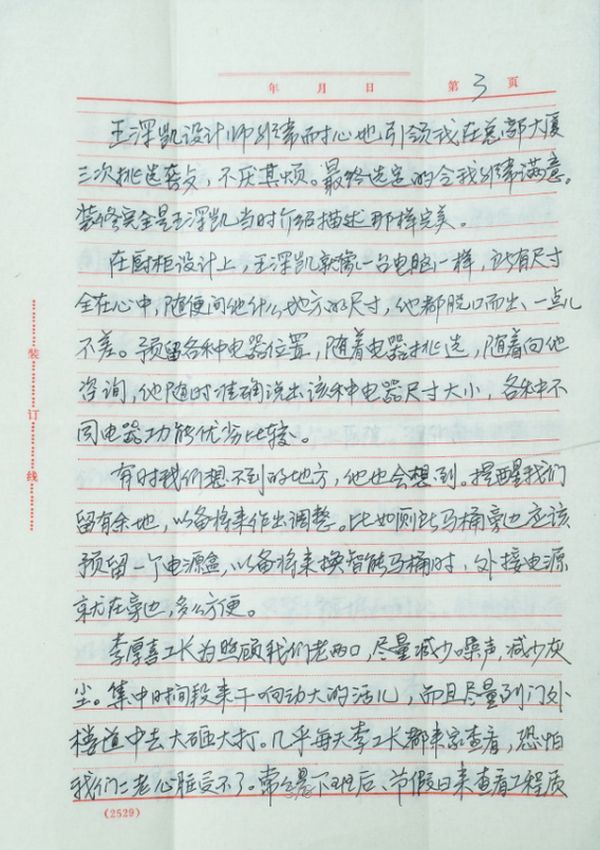 年 月 日 第 3 页
王深凯设计师非常耐心地引领我在总部大厦
三次挑选瓷砖，不厌其烦。最终选定的令我非常满意。
装修完全是王深凯当时介绍描述那样完美。
在厨柜设计上，王深凯就像一台电脑一样，所有尺寸
全在心中，随便问他什么地方的尺寸，他都脱口而出、一点儿
不差。预留各种电器位置，随着电器挑选，随着向他
咨询，他随时准确说出该种电器尺寸大小，各种不
同电器功能优劣比较。
有时我们想不到的地方，他也会想到。提醒我们
留有余地，以备将来作出调整。比如厕所马桶旁边应该
预留一个电源盒，以备将来换智能马桶时，外接电源
就在旁边，多么方便。
李厚喜工长为照顾我们老两口，尽量减少噪声，减少灰
尘。集中时间段来干响动大的活儿，而且尽量到门外
楼道中去大砸大打。几乎每天李工长都来家查看，恐怕
我们二老心脏受不了。常是下班后、节假日来查看工程质
装订线
(2529)